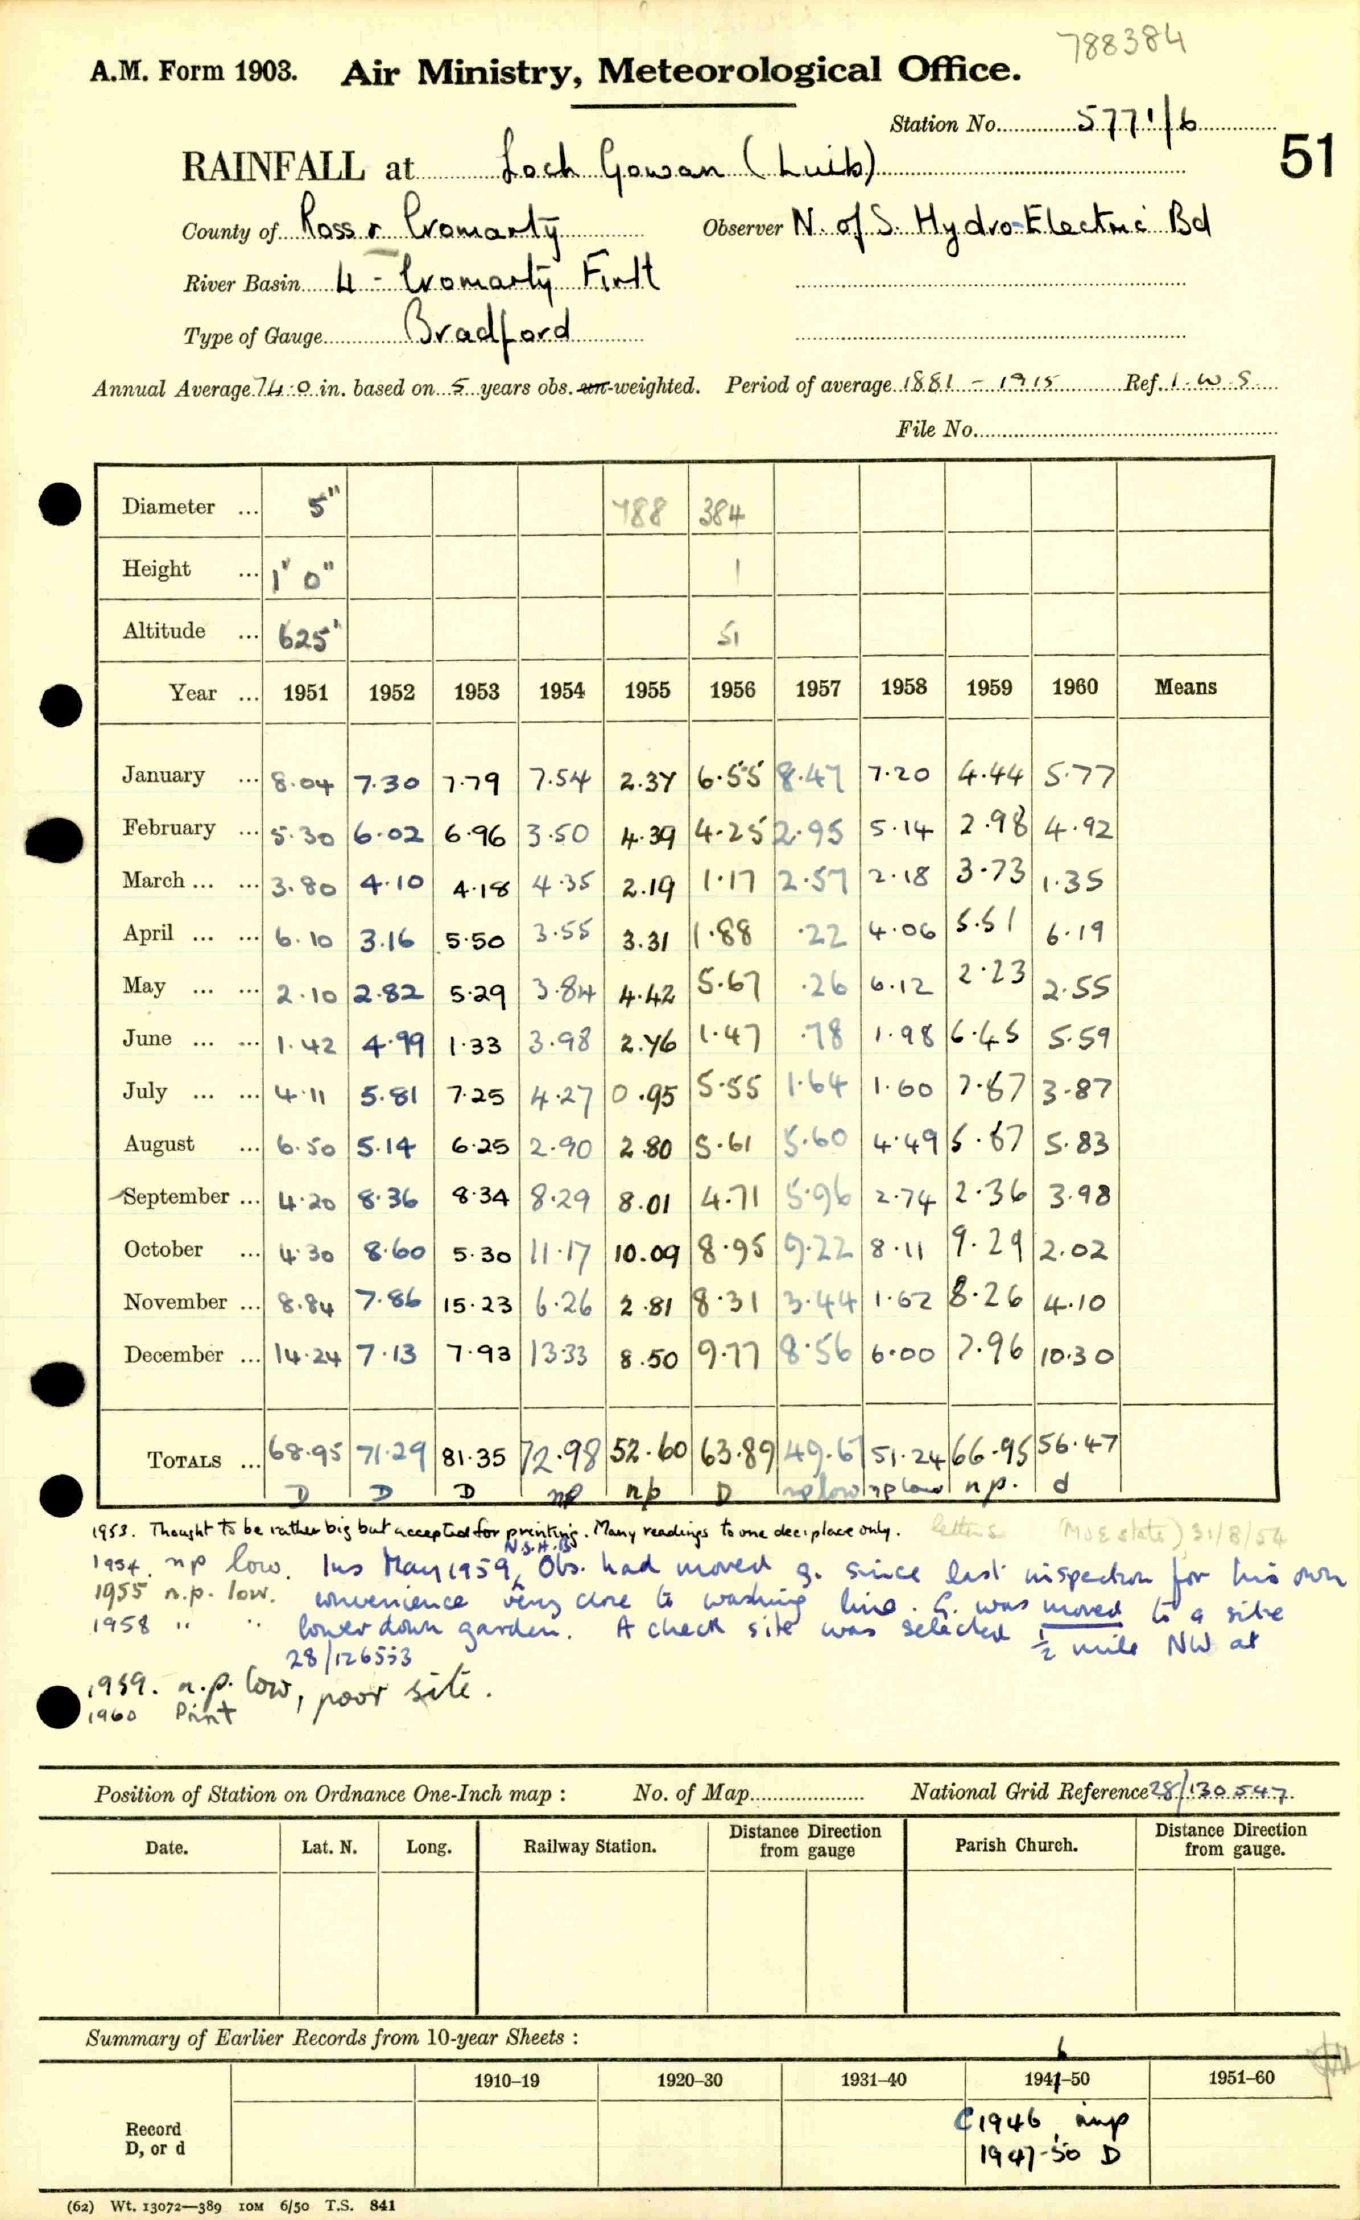 788384
A.M. Form 1903. Air Ministry, Meteorological Office.
Station No. 5771/6
51
RAINFALL at Loch Gowan (Luib)
County of Ross & Cromarty Observer N. of S. Hydro-Electric Bd
River Basin 4 - Cromarty Firth
Type of Gauge Bradford
Annual Average 74.0 in. based on 5 years obs. un-weighted. Period of average 1881 - 1915 Ref. I.W.S.
File No.
Diameter ... 5" 788 384
Height ... 1' 0" 1
Altitude ... 625' 51
Year ... 1951 1952 1953 1954 1955 1956 1957 1958 1959 1960 Means
January ... 8.04 7.30 7.79 7.54 2.37 6.55 8.47 7.20 4.44 5.77
February ... 5.30 6.02 6.96 3.50 4.39 4.25 2.95 5.14 2.98 4.92
March ... ... 3.80 4.10 4.18 4.35 2.19 1.17 2.57 2.18 3.73 1.35
April ... ... 6.10 3.16 5.50 3.55 3.31 1.88 .22 4.06 5.51 6.19
May ... ... 2.10 2.82 5.29 3.84 4.42 5.67 .26 6.12 2.23 2.55
June ... ... 1.42 4.99 1.33 3.98 2.76 1.47 .78 1.98 6.45 5.59
July ... ... 4.11 5.81 7.25 4.27 0.95 5.55 1.64 1.60 7.67 3.87
August ... 6.50 5.14 6.25 2.90 2.80 5.61 5.60 4.49 5.67 5.83
September ... 4.20 8.36 8.34 8.29 8.01 4.71 5.96 2.74 2.36 3.98
October ... 4.30 8.60 5.30 11.17 10.09 8.95 9.22 8.11 9.29 2.02
November ... 8.84 7.86 15.23 6.26 2.81 8.31 3.44 1.62 8.26 4.10
December ... 14.24 7.13 7.93 13.33 8.50 9.77 8.56 6.00 7.96 10.30
TOTALS ... 68.95 71.29 81.35 72.98 52.60 63.89 49.67 51.24 66.95 56.47
D D D np np D np low np low n.p. d
1953. Thought to be rather big but accepted for printing. Many readings to one dec: place only. letters (MOE state) 31/8/54
1954. np low. Ins May 1959, N.S.H.B. Obs. had moved g. since last inspection for his own
1955 n.p. low. convenience very close to washing line. G. was moved to a site
1958 " " lower down garden. A check site was selected ½ mile NW at
28/126553
1959. n.p. low, poor site.
1960 Print
Position of Station on Ordnance One-Inch map : No. of Map National Grid Reference 28/130547
Date. Lat. N. Long. Railway Station. Distance Direction from gauge Parish Church. Distance Direction from gauge.
Summary of Earlier Records from 10-year Sheets :
6
1910–19 1920–30 1931–40 1941–50 1951–60
Record
D, or d
C1946 imp
1947-50 D
(62) Wt. 13072—389 10M 6/50 T.S. 841